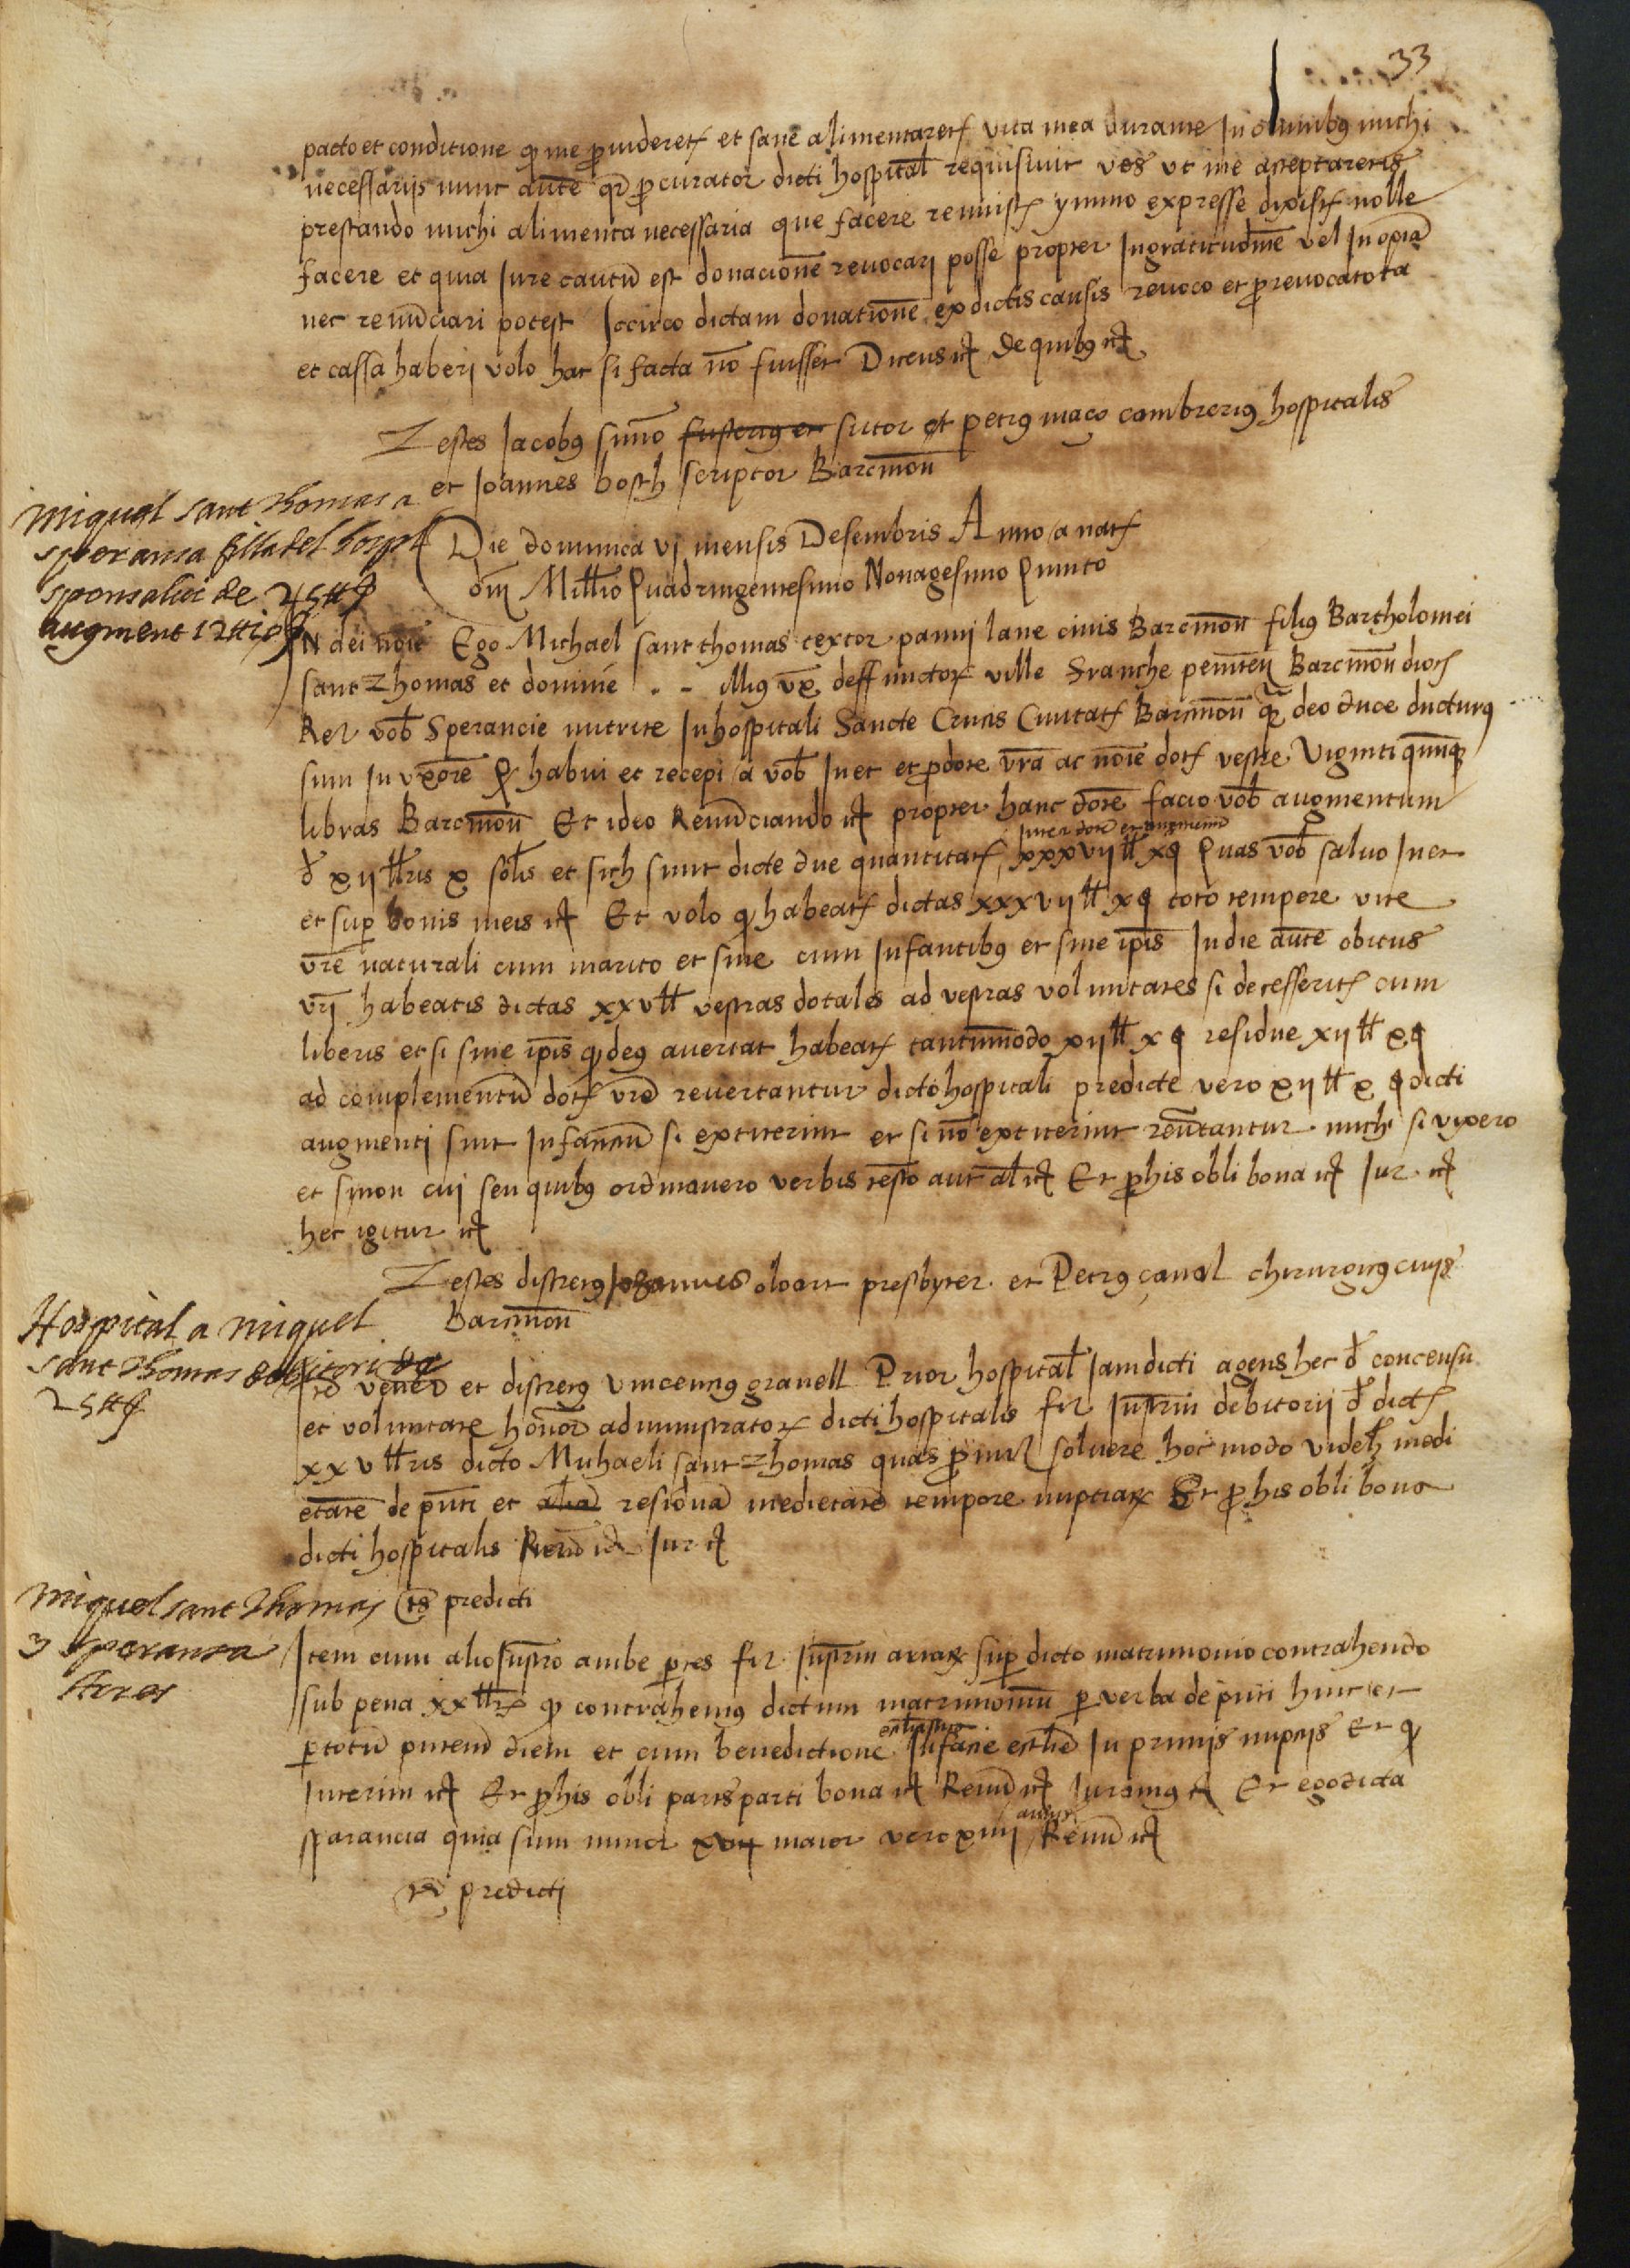 33
pacto et conditione q me provideret et sane alimentaret vita mea durante In omnibus michi
necessariis nunc aute procurator dicti hospital requisivit vos ut me acceptaretis
prestando michi alimenta necessaria que facere renuist ymmo expresse dixist nolle
facere et quia Jure cautu est donacione revocari posse propter Ingratitudine vel Inopia
nec renunciari potest Iccirco dictam donatione ex dictis causis revoco et pro revocato
et cassa haberi volo hac si facta no fuisset Dicens etc De quibus etc
Testes Jacobus simo sutor et petrus maço cambrerius hospitalis
et Joannes bosch scriptor Barcinon
miquel sant thomas a
speransa filla del hospl
sponsalici de 25 ll
augment 12 ll 10 s
Die dominica vi mensis Desembris Anno a nat
dni Millio Quadringentesimo Nonagesimo Quinto
IN dei noie Ego Michael sant thomas textor panni lane civis Barcinon filius Bartholomei
sant Thomas et domine . - illius ux deffunctor ville Franche peniten Barcinon dioc
vob Sperancie nutrite In hospitali Sancte Crucis Civitat Barcinon deo duce ducturus
sum In uxore habui et recepi a vob In et pro dote vra ac noie dot vestre Viginti quinq
libras Barcinon Et ideo Renunciando etc propter hanc dote facio vob augmentum
Inter dote et augmentu
d xii llris x solis et sich sunt dicte due quantitat xxxvii ll x s Quas vob salvo In et
et sup bonis meis etc Et volo q habeat dictas xxxvii ll x s toto tempore vite
vre naturali cum marito et sine cum Infantibus et sine ipis In die aute obitus
vri habeatis dictas xxv ll vestras dotales ad vestras voluntates si decesserit cum
liberis et si sine ipis q deus avertat habeat tantummodo xii ll x s residue xii ll x s
ad complementu dot vre revertantur dicto hospitali predicte vero xii ll x s dicti
augmenti sint Infantiu si extiterint et si no extiterint revtantur mich si vixero
et si non cui seu quibus ordinavero verbis testo aut al etc Et pro his obli bona etc Jur etc
hec igitur etc
Testes discretus Johannes oloart presbyter et Petrus canal chirurgicus civis
Barcinon
Hospital a miquel
sant Thomas debitori de
25 ll
Ite vene et discretus vincencius gravell Prior hospital Jamdicti agens hec d concensu
et voluntate honor administrator dicti hospitalis fir Instrm debitorii d dict
xxv llris dicto Michaeli sant Thomas quas promit solvere hoc modo videl medi
etate de pnti et alia residua medietate tempore nuptiar Et pro his obli bona
dicti hospitalis Renu etc Jur etc
ts predicti
miquel sant Thomas
y speransa
Item cum alio Instro ambe ptes fir Instrm sup dicto matrimonio contrahendo
sub pena xx llr q contrahemus dictum matrimoniu p verba de pnti hinc et
p totu diem et cum benedictione In facie ecclie In primis nuptiis Et q
Interim etc Et pro his obli pars parti bona etc Renu etc Juramus etc Et ego dicta
annis
sparancia quia sum minor maior vero xiiii Renu etc
ts predicti